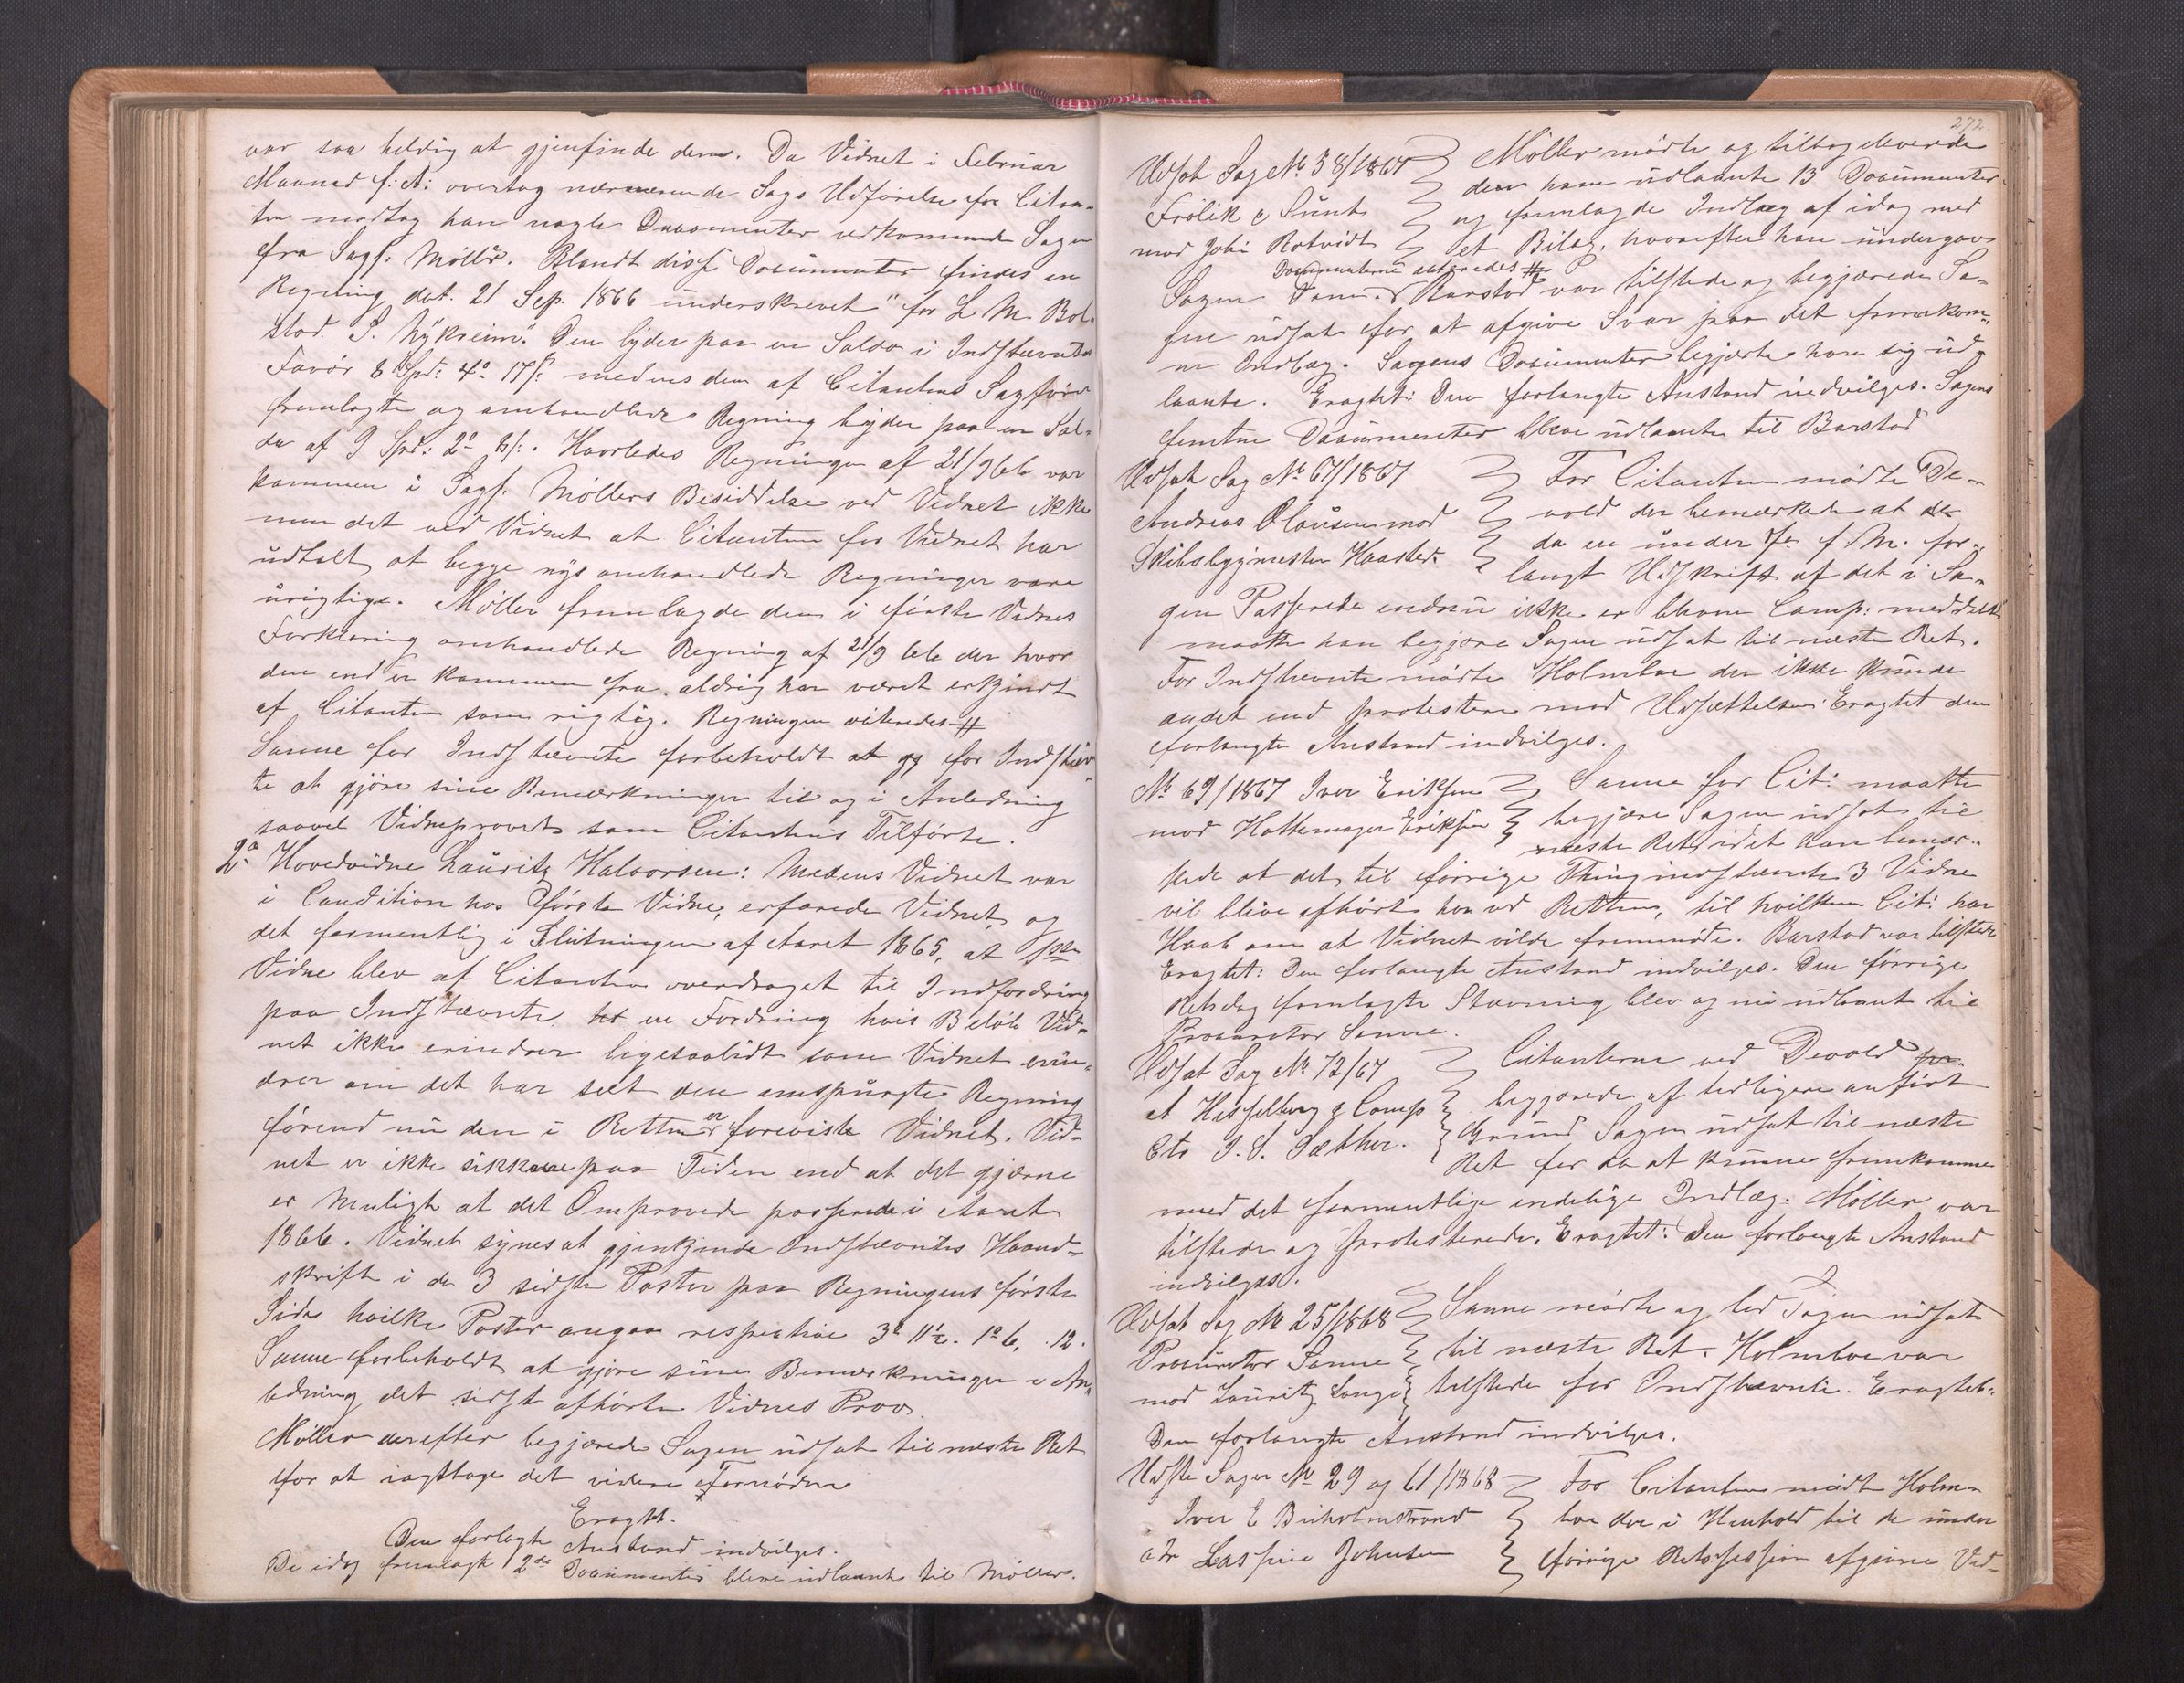 var saa heldig at gjenfinde dem. Da Vidnet i Februar
Maaned f: A: overtog nærværende Sags Udførelse for Citan-
ten modtog han nogle Documenter vedkommende Sagen
fra Sagf: Møller. Blandt disse Documenter findes en
Regning dat. 21 Sep. 1866 underskrevet "for L. M. Bol-
stad. S. Nykreim". Den lyder paa en Saldo i Indstævntes
Favør 8 Spd: 4o 17s: medens den af Citantens Sagfører
fremlagte og omhandlede Regning lyder paa en Sal-
do af 9 Spd: 2o 8s:. Hvorledes Regningen af 21/9 66 var
kommen i Sagf. Møllers Besiddelse ved Vidnet ikke
men det ved Vidnet at Citanten for Vidnet har
udtalt at begge nys omhandlede Regninger vare
urigtige. Møller fremlagde den i første Vidnes
Forklaring omhandlede Regning af 21/9 66 der hvor
den end er kommen fra aldrig har været erkjendt
af Citanten som rigtig. Regningen acteredes #
Sanne for Indstævnte forbeholdt at gj for Indstævn-
te at gjøre sine Bemærkninger til og i Anledning
saavel Vidneprovet som Citantens Tilførte.
2a Hovedvidne Lauritz Halvorsen: Medens Vidnet var
i Condition hos første Vidne, erfarede Vidnet, og
det formentlig i Slutningen af Aaret 1865, at 1ste
Vidne blev af Citanten overdraget til Indfordring
paa Indstævnte en Fordring hvis Beløb Vid-
net ikke erindrer ligesaalidt som Vidnet erin-
drer om det har seet den omspurgte Regning
førend nu den i Retten er foreviste Vidnet. Vid-
net er ikke sikkrere paa Tiden end at det gjerne
er muligt at det Omprovede passerede i Aaret
1866. Vidnet synes at gjenkjende Indstævntes Haand-
skrift i de 3 sidste Poster paa Regningens første
Side hvilke Poster angaa respective 3o 11½. 1o 6. . 12.
Sanne forbeholdt at gjøre sine Bemærkninger i An-
ledning det sidst afhørte Vidnes Prov.
Møller derefter begjærede Sagen udsat til næste Ret
for at iagttage det videre Fornødne
Eragtet.
Den forlangte Anstand indvilges.
De idag fremlagte 2de Documenter bleve udlaante til Møller.
272.
Udsat Sag No 38/1867 Møller mødte og tilbageleverede
Frölik & Sunt den ham udlaante 13 Documenter
mod Joh: Rotvidt og fremlagde Indlæg af idag med
et Bilag, hvorefter han undergav
Documenterne acteredes #
Sagen Dom. Barstad var tilstede og begjærede Sa-
gen udsat for at afgive Svar paa det fremkom-
ne Indlæg. Sagens Documenter begjærte han sig ud-
laante. Eragtet: Den forlangte Anstand indvilges. Sagens
femten Documenter bleve udlaante til Barstad
Udsat Sag No 67/1867 For Citanten mødte De-
Andreas Olausen mod vold der bemærkede at
Skibsbygmester Haasted. da en under 7de f. M. for-
langt Udskrift af det i Sa-
gen Passerede endnu ikke er bleven Comp: meddelt
maatte han begjære Sagen udsat til næste Ret.
For Indstævnte mødte Holmboe der ikke kunde
andet end protestere mod Udsættelsen. Eragtet den
forlangte Anstand indvilges.
No 69/1867 Iver Eriksen Sanne for Cit: maatte
mod Hattemager Eriksen begjære Sagen udsat til
næste Ret, idet han bemær-
kede at det til forrige Thing indstævnte 3 Vidne
vil blive afhørt her ved Retten, til hvilken Cit: har
Haab om at Vidnet vilde fremmøde. Barstad var tilstede
Eragtet: Den forlangte Anstand indvilges. Den forrige
Retsdag fremlagte Stævning blev og nu udlaant til
Procurator Sanne.
Udsat Sag No 72/67 Citanterne ved Devold
A Hesselberg & Comp begjærede af tidligere anført
Ctr J. S. Sæther. Grund Sagen udsat til næste
Ret for da at kunne fremkomme
med det formentlige endelige Indlæg. Møller var
tilstede og protesterede. Eragtet: Den forlangte Anstand
indvilges.
Udsat Sag No 25/1868 Sanne mødte og lod Sagen udsat
Procurator Sanne til næste Ret. Holmboe var
mod Lauritz Lange tilstede for Indstævnte. Eragtet:
Den forlangte Anstand indvilges.
Udste Sager No 29 og 61/1868 For Citanten mødte Holm-
Iver E Buholmstrand boe der i Henhold til de under
ctr Johnsen forrige Retssession afgivne Vid-